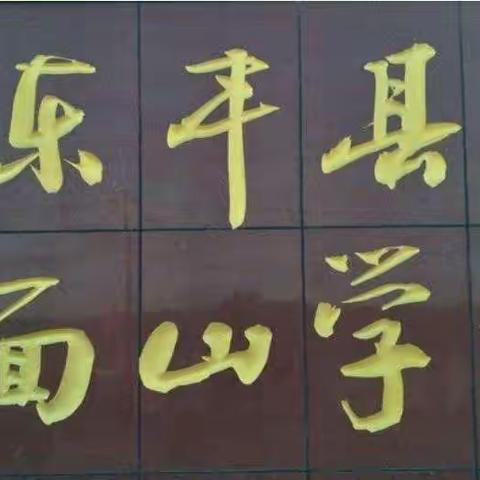 东平县
面山学